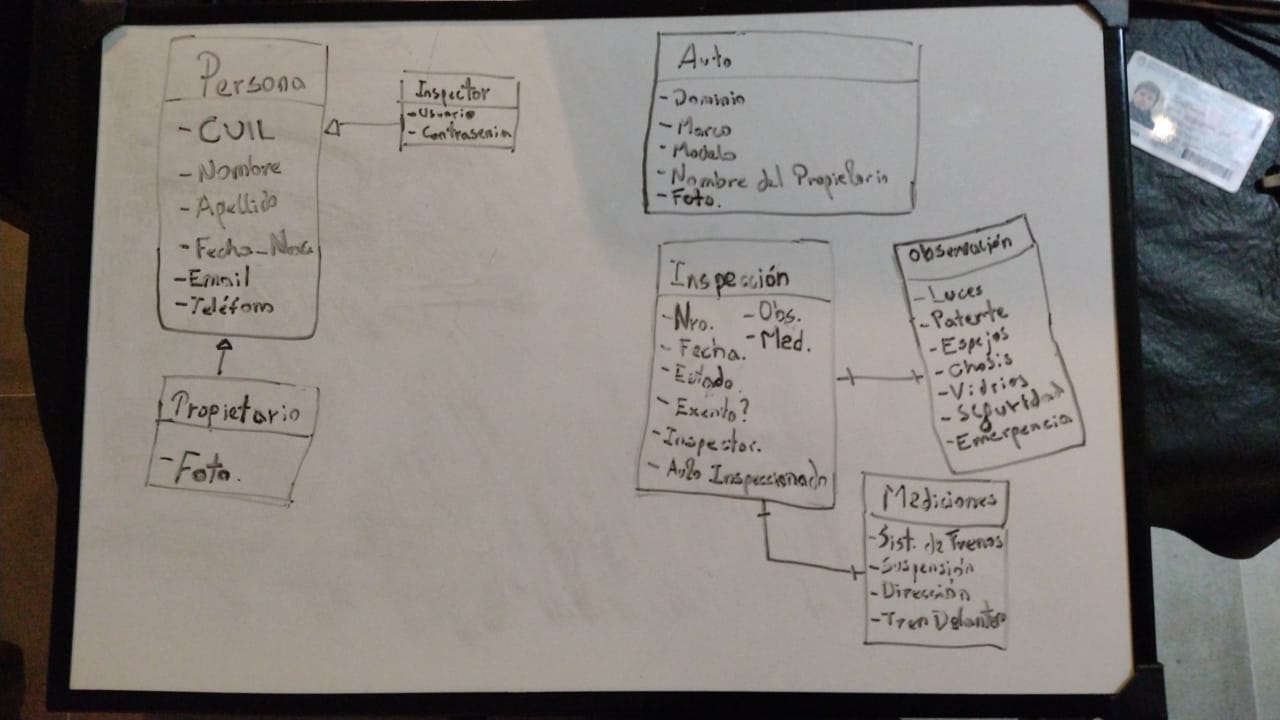 Persona
- CUIL
- Nombre
- Apellido
- Fecha_Nac
- Email
- Teléfono
Inspector
- Usuario
- Contrasenia
Propietario
- Foto.
Auto
- Dominio
- Marca
- Modelo
- Nombre del Propietario
- Foto.
Inspección
- Nro. - Obs.
- Fecha. - Med.
- Estado.
- Exento?
- Inspector.
- Auto Inspeccionado
Observación
- Luces
- Patente
- Espejos
- Chasis
- Vidrios
- Seguridad
- Emergencia
Mediciones
- Sist. de Frenos
- Suspensión
- Dirección
- Tren Delantero